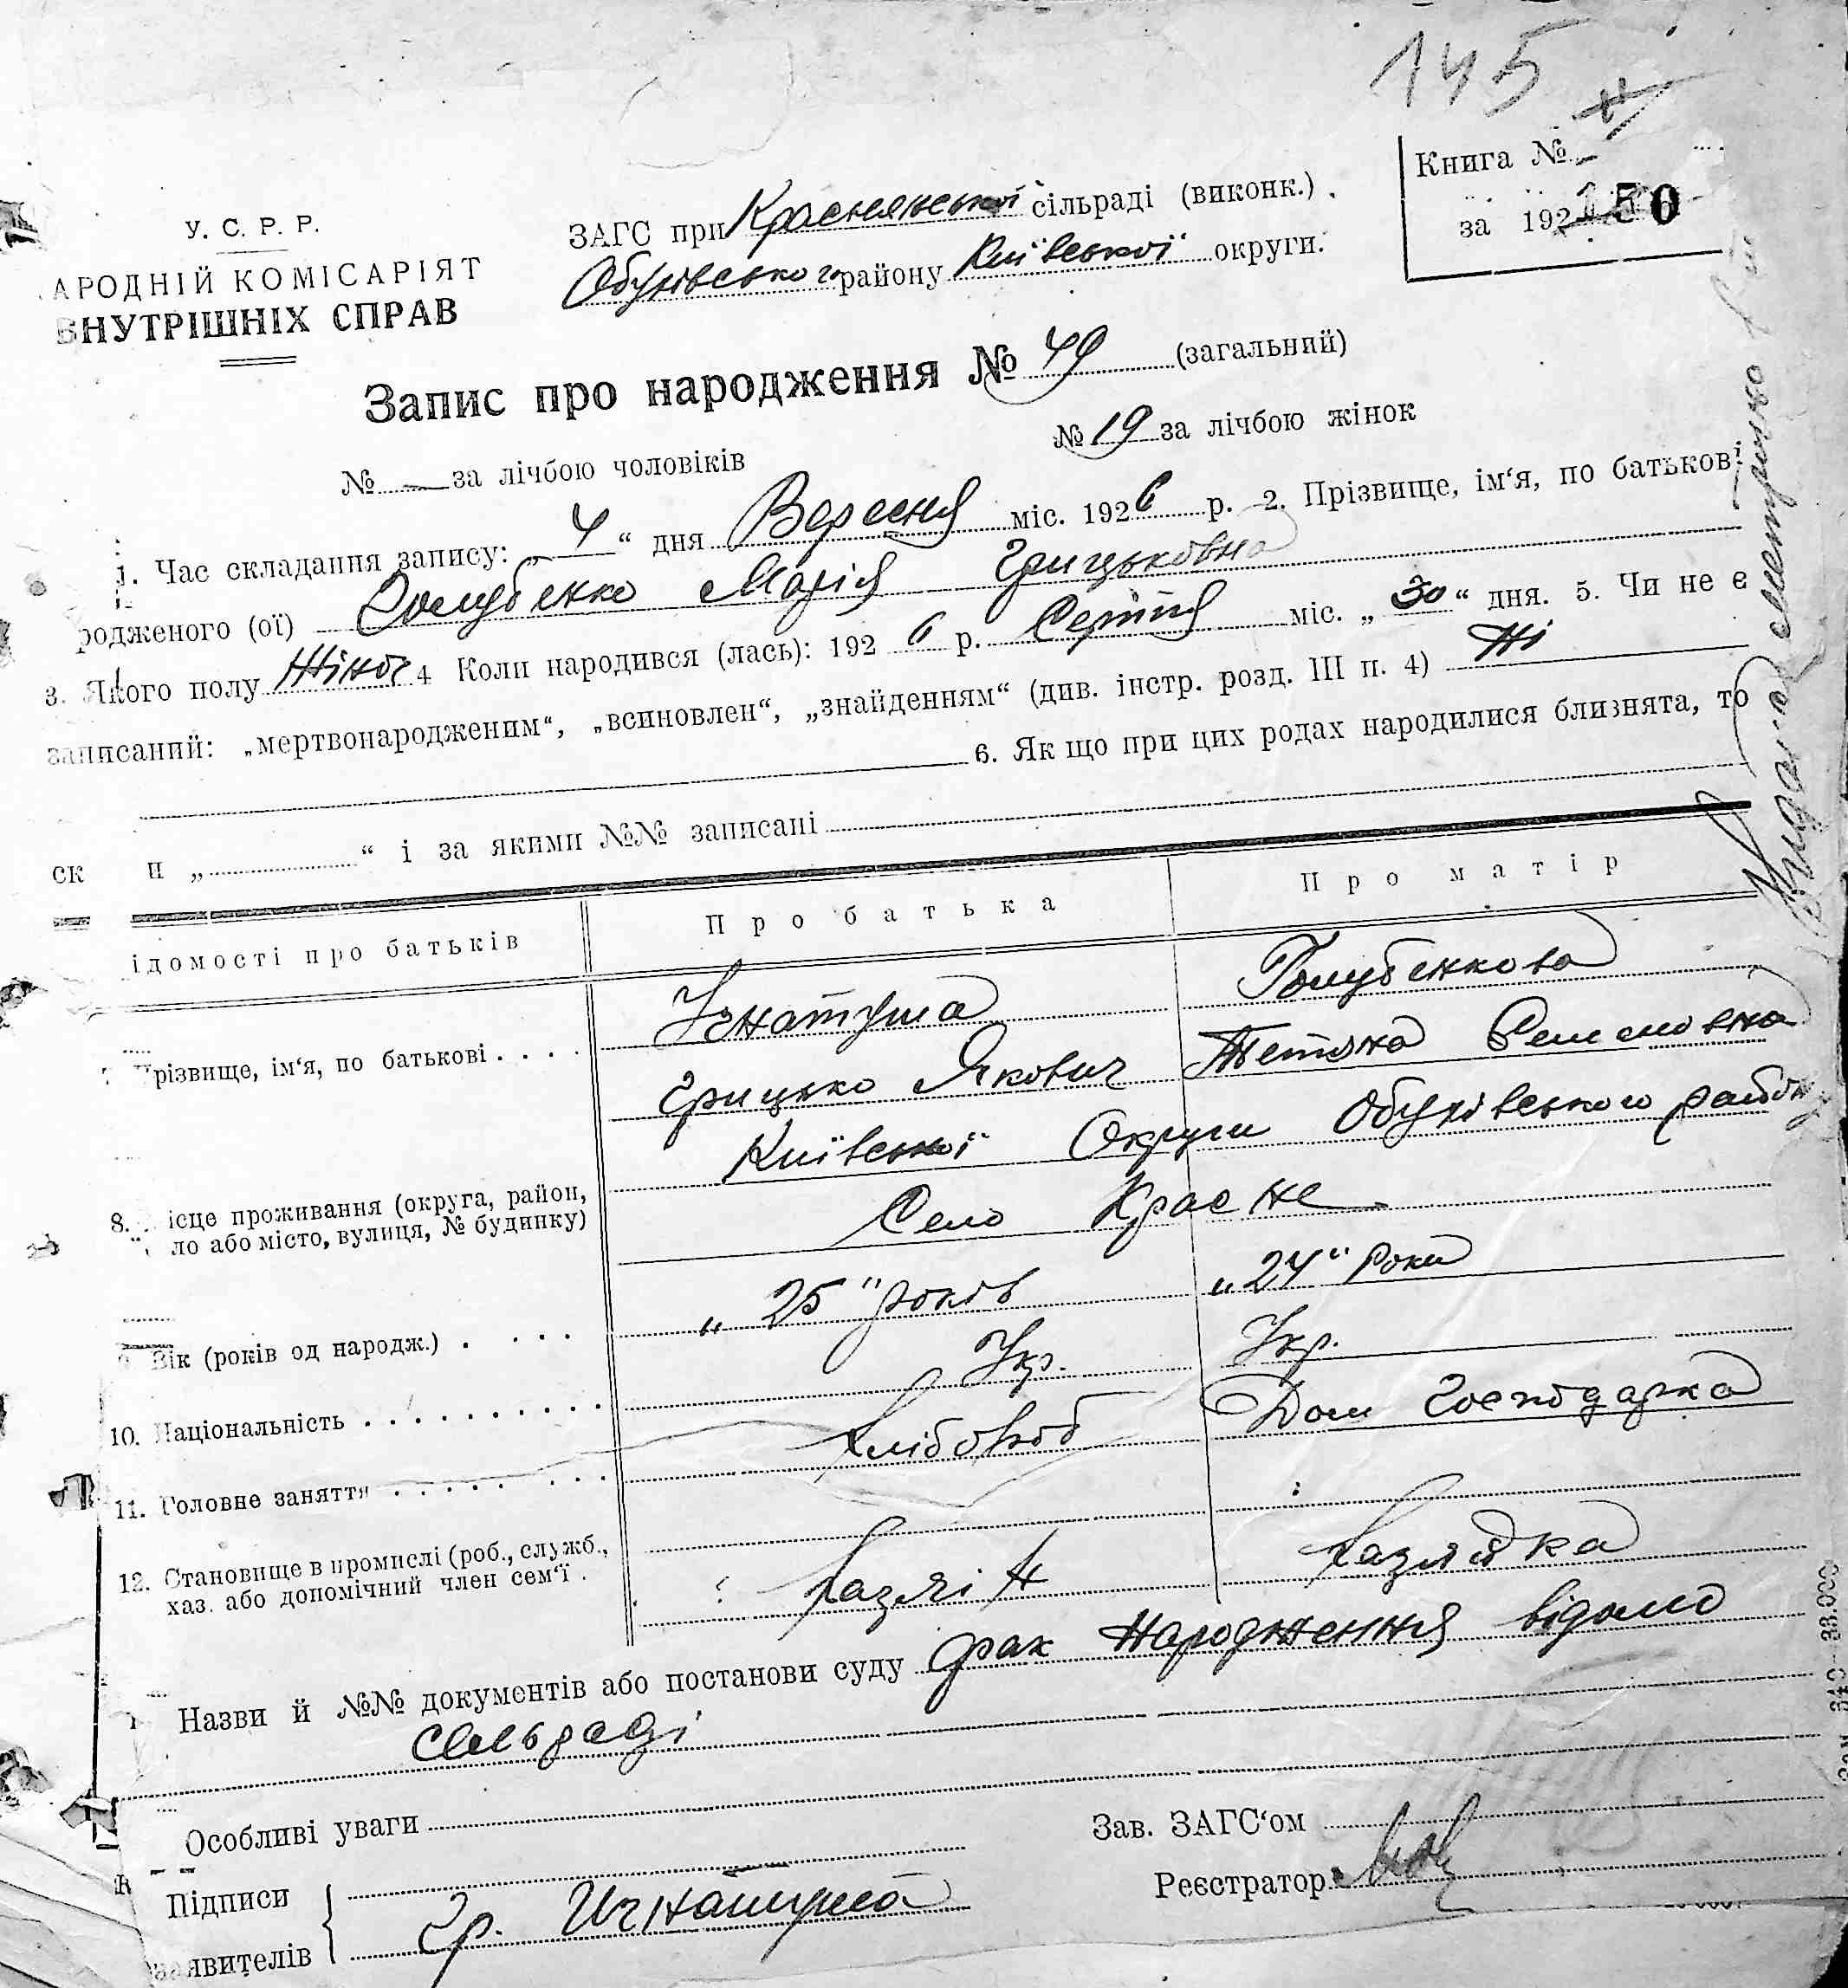 145
Книга №
за 192
150
У. С. Р. Р.
АРОДНІЙ КОМІСАРІЯТ
ВНУТРІШНІХ СПРАВ
ЗАГС при Краснянської сільраді (виконк.)
Обухівського району Київської округи.
Запис про народження № 49 (загальний)
№ — за лічбою чоловіків
№ 19 за лічбою жінок
1. Час складання запису: „ 4 “ дня Вересня міс. 1926 р. 2. Прізвище, ім‘я, по батькові
родженого (ої) Голубенко Марія Грицьковна
3. Якого полу Жіноч 4 Коли народився (лась): 192 6 р. Серпня міс. „ 30 “ дня. 5. Чи не є
записаний: „мертвонародженим“, „всиновлен“, „знайденням“ (див. інстр. розд. III п. 4) Ні
6. Як що при цих родах народилися близнята, то
ск и „ “ і за якими №№ записані
ідомості про батьків
Про батька
Про матір
різвище, ім‘я, по батькові
Ігнатуша
Голубенкова
Грицько Якович
Тетяна Семеновна
8. ісце проживання (округа, район,
ло або місто, вулиця, № будинку)
Київської Округи Обухівського району
Село Красне
9. Вік (років од народж.)
„ 25 " років
„ 24 " Роки
10. Національність
Укр.
Укр.
11. Головне заняття
Хлібороб
Дом Господарка
12. Становище в промислі (роб., служб.,
хаз. або допомічний член сем‘ї
Хазяін
Хазяйка
Назви й №№ документів або постанови суду Фак народження відомо
сільраді
Особливі уваги
Зав. ЗАГС‘ом
Реєстратор
Підписи
заявителів
Гр. Игнатуша
Видана метрика